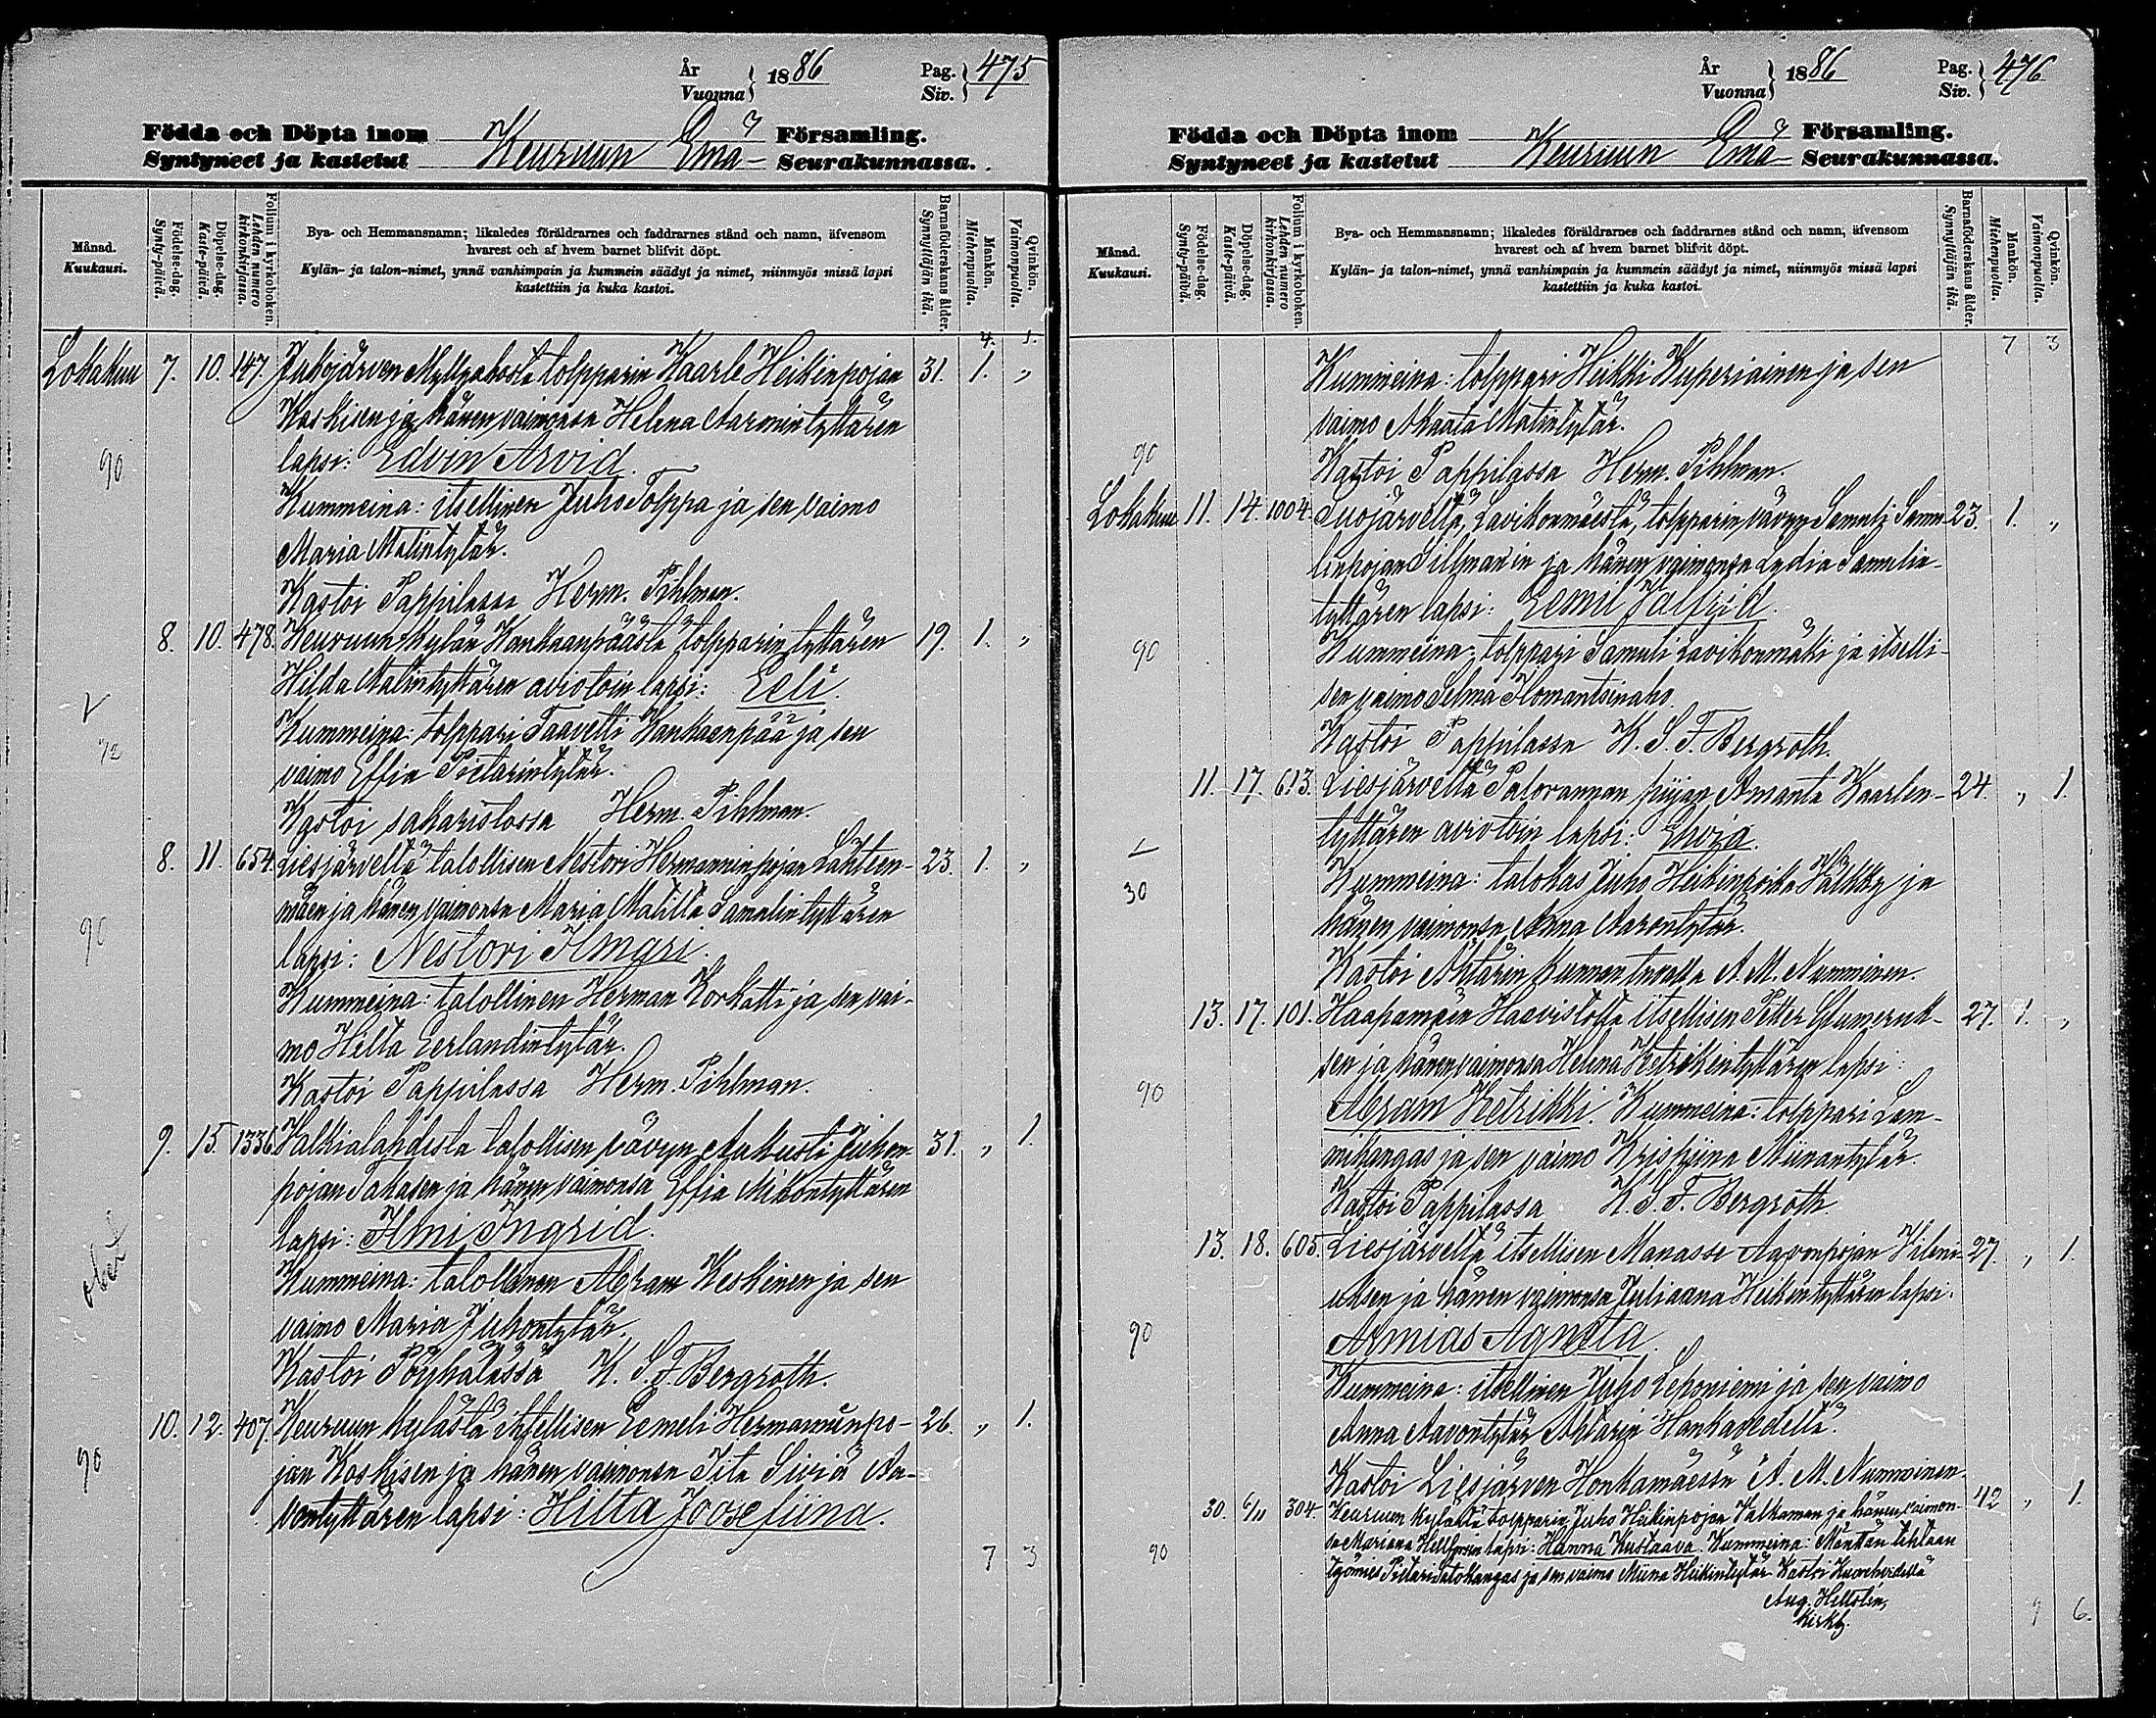 År
Vuonna } 1886 Pag.
Siv. } 475
Födda och Döpta inom
Syntyneet ja kastetut Keuruun Emä- Församling.
Seurakunnassa.
Månad.
Kuukausi.
Födelse-dag.
Synty-päivä.
Döpelse-dag.
Kaste-päivä.
Folium i kyrkoboken.
Lehden numero kirkonkirjassa.
Bya- och Hemmansnamn; likaledes föräldrarnes och faddrarnes stånd och namn, äfvensom
hvarest och af hvem barnet blifvit döpt.
Kylän- ja talon-nimet, ynnä vanhimpain ja kummein säädyt ja nimet, niinmyös missä lapsi
kastettiin ja kuka kastoi.
Barnaföderskans ålder.
Synnyttäjän ikä.
Mankön.
Miehenpuolia.
Qvinkön.
Vaimonpuolia.
4. 1.
Lokakuu 7. 10. 147. Jukojärven Myllyaholta tolpparin Kaarle Heikinpojan 31. 1. „
Koskisen ja hänen vaimonsa Helena Aarmintyttären
90 lapsi: Edvin Arvid.
Kummeina: itsellinen Juho Tolppa ja sen vaimo
Maria Matintytär.
Kastoi Pappilassa Herm. Pihlman.
8. 10. 478. Keuruun kylän Kankaanpäästä tolpparin tyttären 19. 1. „
Hilda Matintyttären aviotoin lapsi: Eeli.
Kummeina: tolppari Taavetti Kankaanpää ja sen
72 vaimo Effia Pietarintytär.
Kastoi sakaristossa Herm. Pihlman.
8. 11. 654. Liesjärveltä talollisen Nestori Hermanninpojan Lähteen- 23. 1. „
mäen ja hänen vaimonsa Maria Matilta Samulintyttären
90 lapsi: Nestori Ilmari.
Kummeina: talollinen Herman Korkatti ja sen vai-
mo Hilta Eerlandintytär.
Kastoi Pappilassa Herm. Pihlman.
9. 15. 1336. Valkialahdesta talollisen vävyn Aukusti Juhon- 31. „ 1.
pojan Tahasen ja hänen vaimonsa Effia Mikontyttären
lapsi: Ilmi Ingrid.
Kummeina: talollinen Abram Keskinen ja sen
vaimo Maria Juhontytär.
Kastoi Pöyhölässä K. S. F. Bergroth.
10. 12. 407. Keuruun kylästä itsellisen Eemeli Hermanninpo- 26. „ 1.
90 jan Koskisen ja hänen vaimonsa Iita Siviä Aa-
rontyttären lapsi: Hilta Joosefiina.
7 3
År
Vuonna } 1886 Pag.
Siv. } 476
Födda och Döpta inom
Syntyneet ja kastetut Keuruun Emä- Församling.
Seurakunnassa.
Månad.
Kuukausi.
Födelse-dag.
Synty-päivä.
Döpelse-dag.
Kaste-päivä.
Folium i kyrkoboken.
Lehden numero kirkonkirjassa.
Bya- och Hemmansnamn; likaledes föräldrarnes och faddrarnes stånd och namn, äfvensom
hvarest och af hvem barnet blifvit döpt.
Kylän- ja talon-nimet, ynnä vanhimpain ja kummein säädyt ja nimet, niinmyös missä lapsi
kastettiin ja kuka kastoi.
Barnaföderskans ålder.
Synnyttäjän ikä.
Mankön.
Miehenpuolia.
Qvinkön.
Vaimonpuolia.
7 3
Kummeina: tolppari Heikki Kuperiainen ja sen
vaimo Akaata Matintytär.
90 Kastoi Pappilassa Herm. Pihlman.
Lokakuu 11. 14. 1004. Suojärveltä, Lavikonmäestä, tolpparin vävyn Samuli Samu- 23. 1. „
linpojan Sillmanin ja hänen vaimonsa Lydia Samulin-
tyttären lapsi: Eemil Jalfrid.
90 Kummeina: tolppari Samuli Lavikonmäki ja itselli-
sen vaimo Selma Ilomantsinaho.
Kastoi Pappilassa K. S. F. Bergroth.
11. 17. 613. Liesjärveltä Palorannan piijan Amanta Kaarlen- 24. „ 1.
tyttären aviotoin lapsi: Elviia.
30 Kummeina: talokas Juho Heikinpoika Välkky ja
hänen vaimonsa Anna Aarontytär.
Kastoi Ähtärin kunnan tuvalla A. M. Numminen.
13. 17. 101. Haapamäen Haavistolta itsellisen Petter Glumeruk- 27. 1. „
sen ja hänen vaimonsa Helena Ketrikintyttären lapsi:
90 Abram Ketrikki. Kummeina: tolppari Lam-
mikangas ja sen vaimo Krispiina Miinantytär.
Kastoi Pappilassa K. S. F. Bergroth.
13. 18. 605. Liesjärveltä itsellisen Manasse Aaronpojan Vileni- 27. „ 1.
uksen ja hänen vaimonsa Juliaana Heikintyttären lapsi:
90 Armias Agneta.
Kummeina: itsellinen Juho Lehoniemi ja sen vaimo
Anna Aarontytär Ähtärin Hankavedeltä.
Kastoi Liesjärven Honkamäessä A. M. Numminen.
30. 6/11 304. Keuruun kylästä tolpparin Juho Heikinpojan Valkaman ja hänen vaimon- 42 „ 1.
90 sa Mariana lapsi: Hanna Kustaava. Kummeina: Mäntän tehtaan
työmies Pietari Satokangas ja sen vaimo Miina Heikintytär. Kastoi
Aug. Hellstén,
kirkh.
9 6.